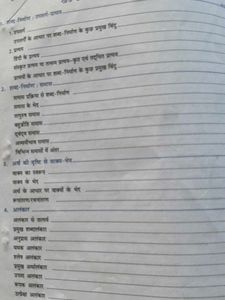 1. शब्द-निर्माण : उपसर्ग-प्रत्यय
1. उपसर्ग
उपसर्गों के आधार पर शब्द-निर्माण के कुछ प्रमुख बिंदु
2. प्रत्यय
हिंदी के प्रत्यय
संस्कृत प्रत्यय या तत्सम प्रत्यय-कृत् एवं तद्धित प्रत्यय
प्रत्ययों के आधार पर शब्द-निर्माण के कुछ प्रमुख बिंदु
2. शब्द-निर्माण : समास
समास प्रक्रिया से शब्द-निर्माण
समास के भेद
तत्पुरुष समास
बहुव्रीहि समास
द्वंद्व समास
अव्ययीभाव समास
विभिन्न समासों में अंतर
3. अर्थ की दृष्टि से वाक्य-भेद
वाक्य का स्वरूप
वाक्य के भेद
अर्थ के आधार पर वाक्यों के भेद
रूपांतरण/रचनांतरण
4. अलंकार
अलंकार से तात्पर्य
प्रमुख शब्दालंकार
अनुप्रास अलंकार
यमक अलंकार
श्लेष अलंकार
प्रमुख अर्थालंकार
उपमा अलंकार
रूपक अलंकार
उत्प्रेक्षा अलंकार